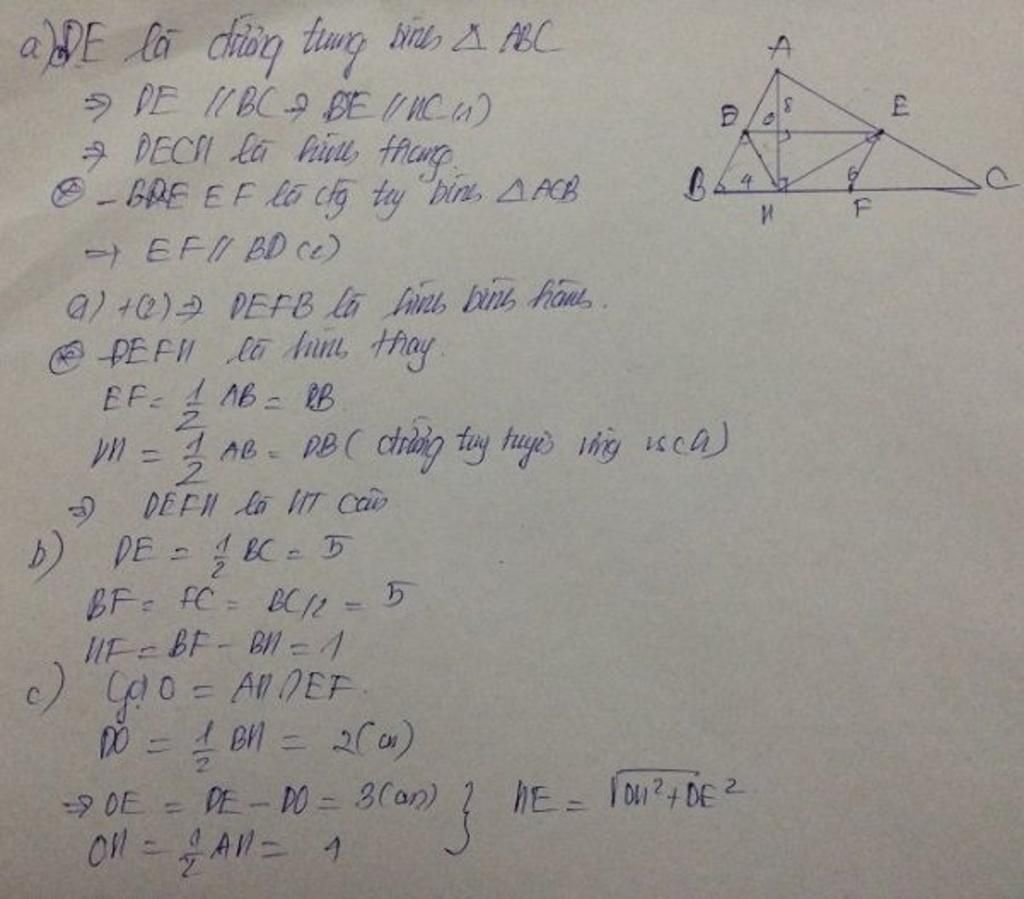 a) DE là đường trung bình △ ABC
⇒ DE // BC ⇒ BE // HC (1)
⇒ DECH là hình thang
⊛ - EF là đg try bình △ ACB
⇒ EF // BD (2)
(1) + (2) ⇒ DEFB là hình bình hành.
⊛ DEFH là hình thag.
EF = 1/2 AB = DB
DH = 1/2 AB = DB ( đường tuy tuyến ứng vs cạ)
⇒ DEFH là HT cân
b) DE = 1/2 BC = 5
BF = FC = BC/2 = 5
HF = BF - BH = 1
c) Gọi O = AH ∩ EF.
DO = 1/2 BH = 2 (cm)
⇒ OE = DE - DO = 3 (cm) } HE = √OH² + OE²
OH = 1/2 AH = 4
A
D O 8 E
B 4 6 C
H F